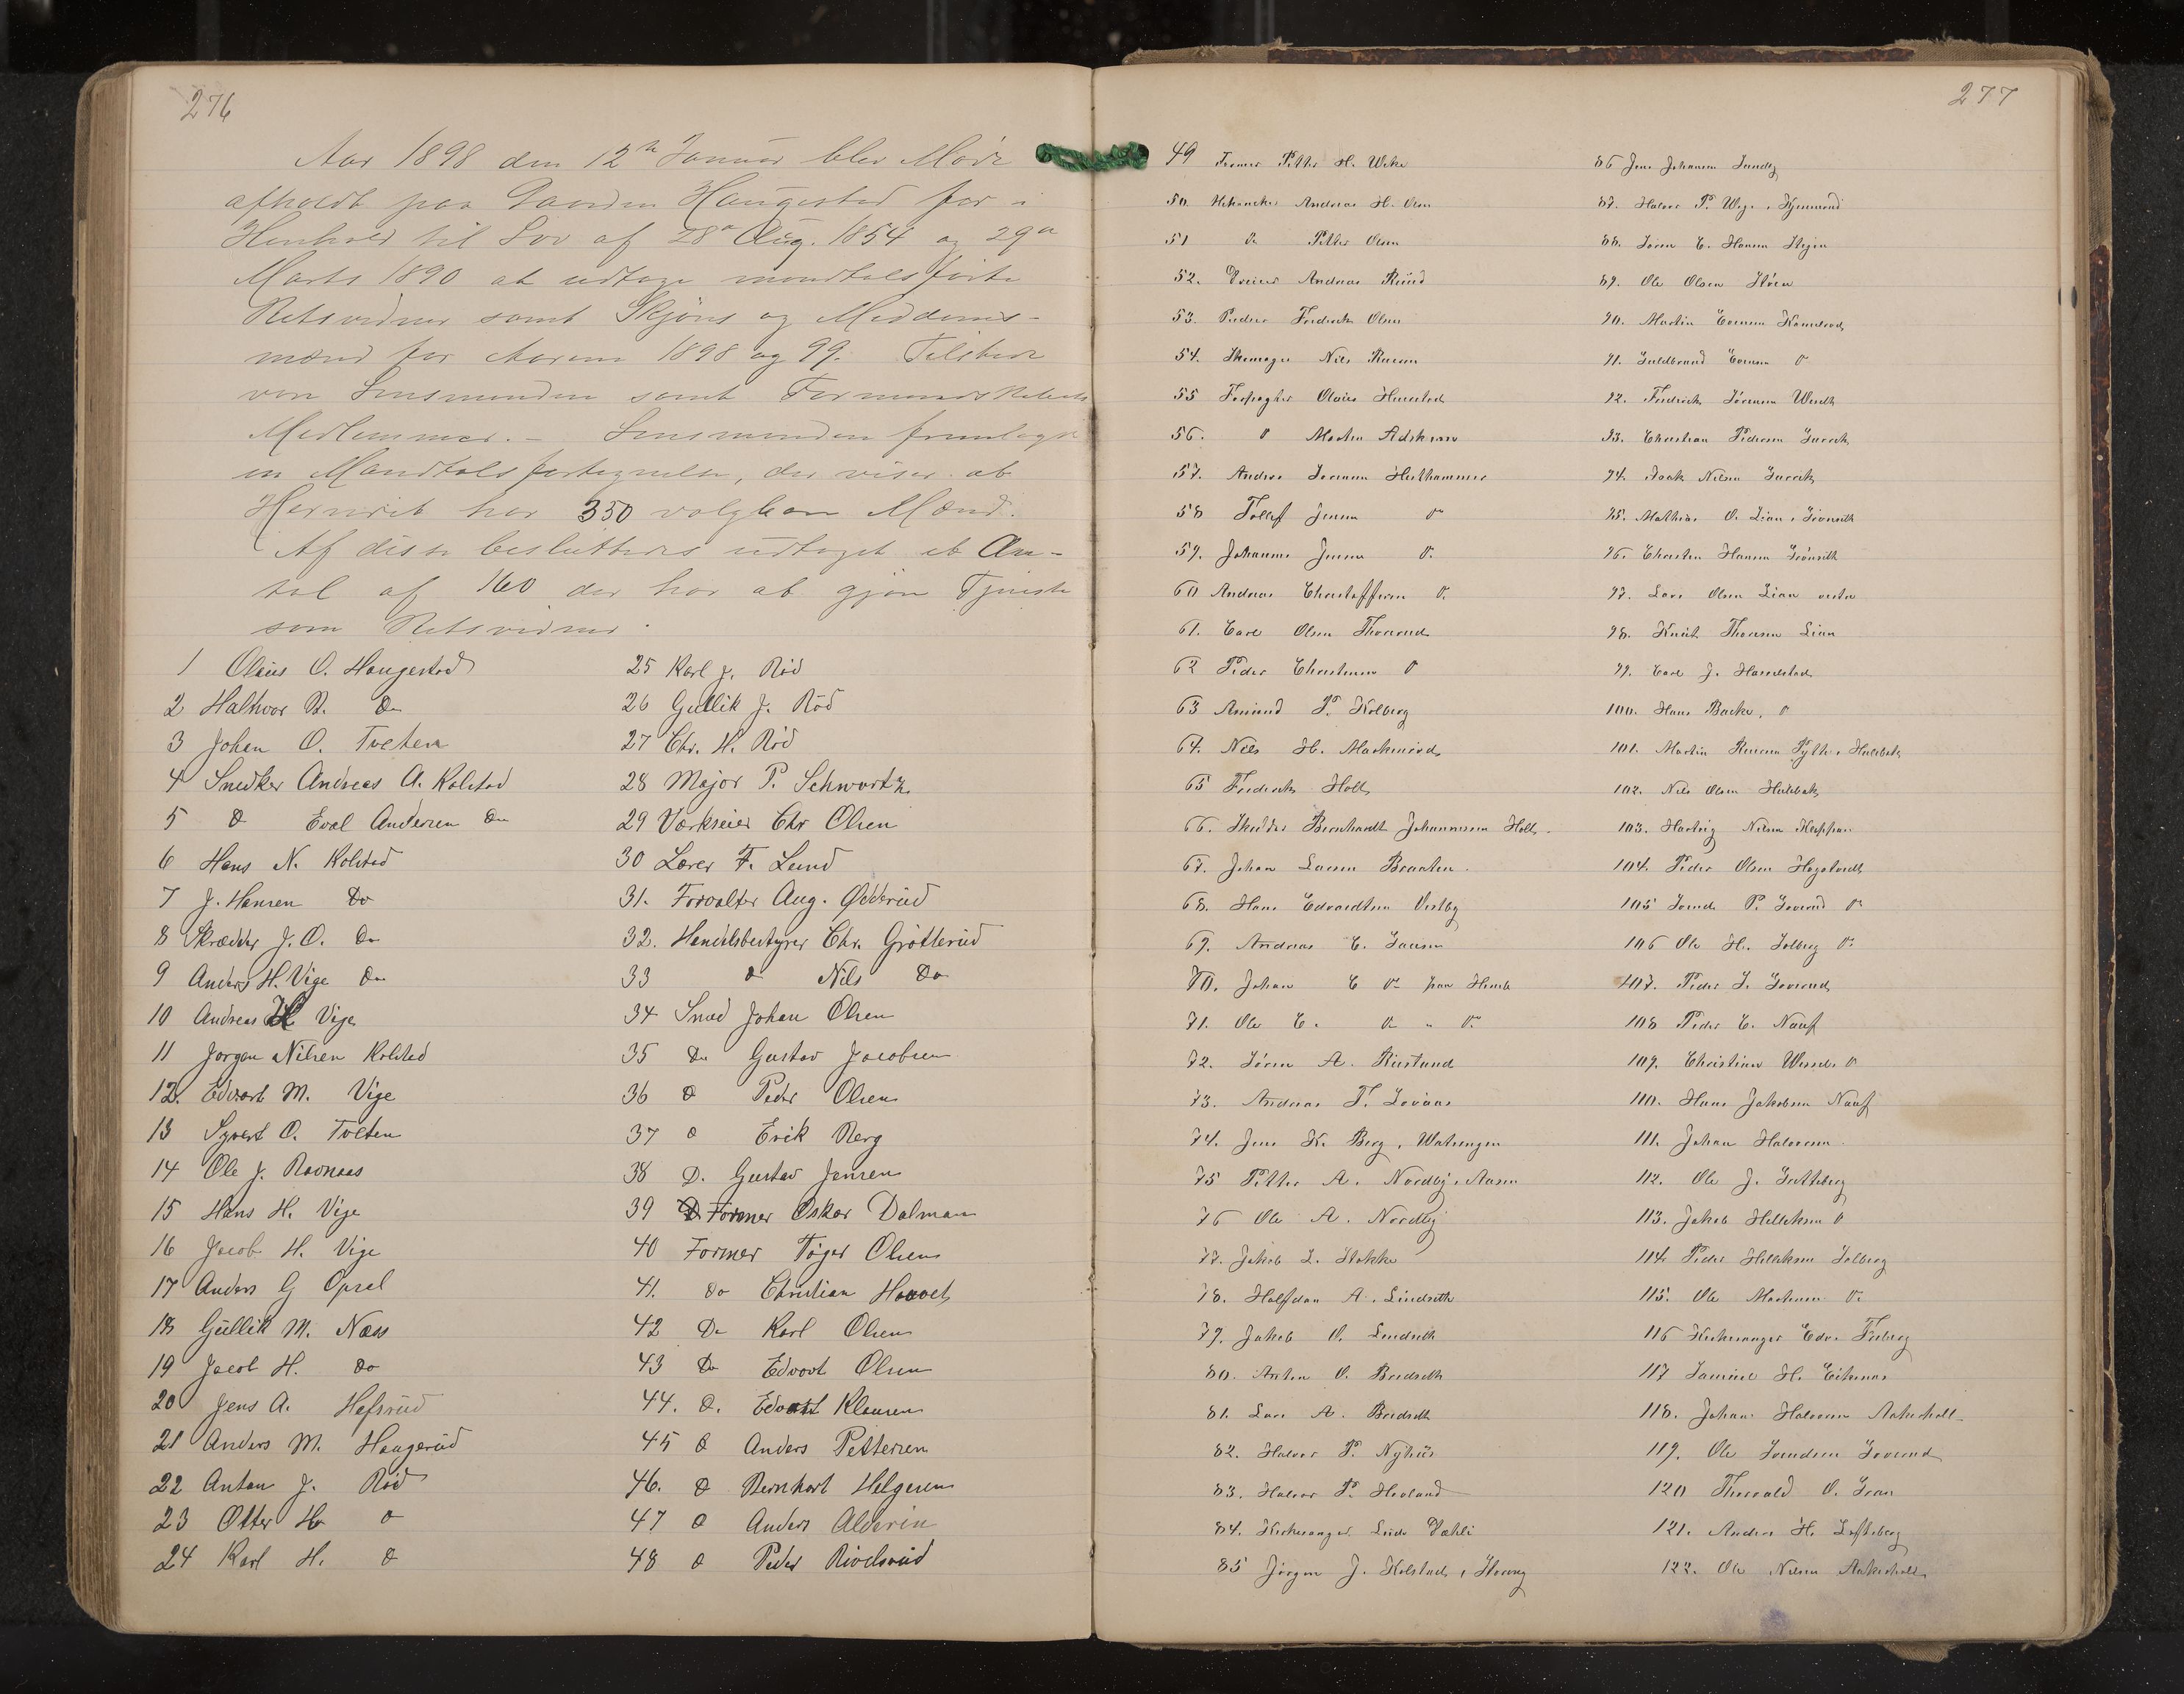 276
Aar 1898 den 12te Januar blev Møde
afholdt paa Gaarden Haugestad for i
Henhold til Lov af 28de Aug. 1854 og 29de
Marts 1890 at udtage mandtalsførte
Retsvidner samt Skjøns og Meddoms-
mænd for Aarene 1898 og 99. Tilstede
var Lensmanden samt Formandskabets
Medlemmer. – Lensmanden fremlagde
en Mandtalsfortegnelse, der viser at
Herredet har 350 valgbare Mænd.
Af disse besluttedes udtaget et An-
tal af 160 der har at gjøre Tjeneste
som Retsvidner.
1 Olaus O. Haugestad
2 Halhvor B. Do
3 Johan O. Tveten
4 Snedker Andreas A. Kolstad
5 Do Eval Andersen Do
6 Hans N. Kolstad
7 J. Hansen Do
8 Skrædder J. O. Do
9 Anders H. Vige Do
10 Andreas H. Vige
11 Jørgen Nilsen Kolstad
12. Edvart M. Vige
13 Syvert O. Tveten
14 Ole J. Ravnaas
15 Hans H. Vige
16 Jacob H. Vige
17 Anders G Opsal
18 Gullik M. Næss
19 Jacob H. Do
20 Jens A. Hefsrud
21 Anders M. Haugerud
22 Anton J. Rød
23 Otter H. Do
24 Karl H. Do
25 Karl J. Rød
26 Gullik J. Rød
27 Chr. H. Rød
28 Major P. Schwartz
29 Værkseier Chr Olsen
30 Lærer F. Lund
31. Forvalter Aug. Ødderud
32. Handelsbestyrer Chr. Grøtterud
33 Do Nils Do
34 Sned Johan Olsen
35 Do Gustav Jacobsen
36 Do Peder Olsen
37 Do Erik Berg
38 D. Gustav Jansen
39 Former Oskar Dalman
40 Former Tøger Olsen
41. Do Christian Hauvet
42 Do Karl Olsen
43 Do Edvart Olsen
44. D. Edvart Klausen
45 Do Anders Pettersen
46. Do Bernhart Helgesen
47 Do Anders Alderin
48 Do Peder Rivelsrud
277
49 Former Petter H. Weke
50. Mekaniker Andreas H. Olsen
51 Do Petter Olsen
52. Dreier Andreas Ruud
53. Pudser Fredrik Olsen
54. Skomager Nils Larsen
55 Forpagter Olaus Huvestad
56. Do Martin
57. Andreas Sørensen Hesthammer
58 Tollef Jensen Do
59. Johannes Jensen Do
60 Andreas Christoffersen Do
61. Carl Olsen Thorrud
62 Peder Christensen Do
63 Amund P. Kolberg
64. Nils H. Markerud
65 Fredrik Holt
66. Skrædder Bernhardt Johannessen Holt
67. Johan Larsen Braaten
68. Hans Edvardtsen Vestby
69. Andreas C. Jansen
70. Johan C Do paa
71. Ole C. Do " Do
72. Søren A. Rustand
73. Andreas T. Lovaas
74. Jens K. Berg, Watsengen
75 Petter A. Nordby, Aasen
76 Ole A. Nordby
77. Jakob L. Stokke
78. Halfdan A. Lindseth
79. Jakob O. Lindseth
80. Anton O. Bredseth
81. Lars A. Bredseth
82. Halvor P. Nyhus
83. Halvor P. Hvaland
84. Kirkesanger Dæhli
85 Jørgen J. Kolstad,
86 Jens Johansen Sundby
87. Halvor P. Wige,
88. Søren C. Hansen Stegen
89. Ole Olsen
90. Martin Evensen
91. Guldbrand Evensen Do
92. Fredrik Sørensen
93. Christian Pedersen
94. Isak Nilsen
95. Mathias O. Lian, Grønseth
96. Christen Hansen Grønseth
97. Lars Olsen Lian vestre
98. Knut Thoresen Lian
99. Carl J.
100. Hans Backe, Do
101. Martin Larsen
102. Nils Olsen Hulebak
103. Hartvig Nilsen
104. Peder Olsen Hogstvedt
105 P. Do
106 Ole H. Solberg Do
107. Peder S.
108 Peder C. Nauf
109. Christian Do
110. Hans Jakobsen Nauf
111. Johan Halvorsen
112. Ole J.
113. Jakob Helleksen Do
114. Peder Helleksen Solberg
115. Ole Do
116 Kirkesanger Edv. Freberg
117 H. Eikenes
118. Johan Halvorsen Aakerholt
119. Ole
120 Thorvald O. Gran
121. Anders H.
122. Ole Nilsen Aakerholt